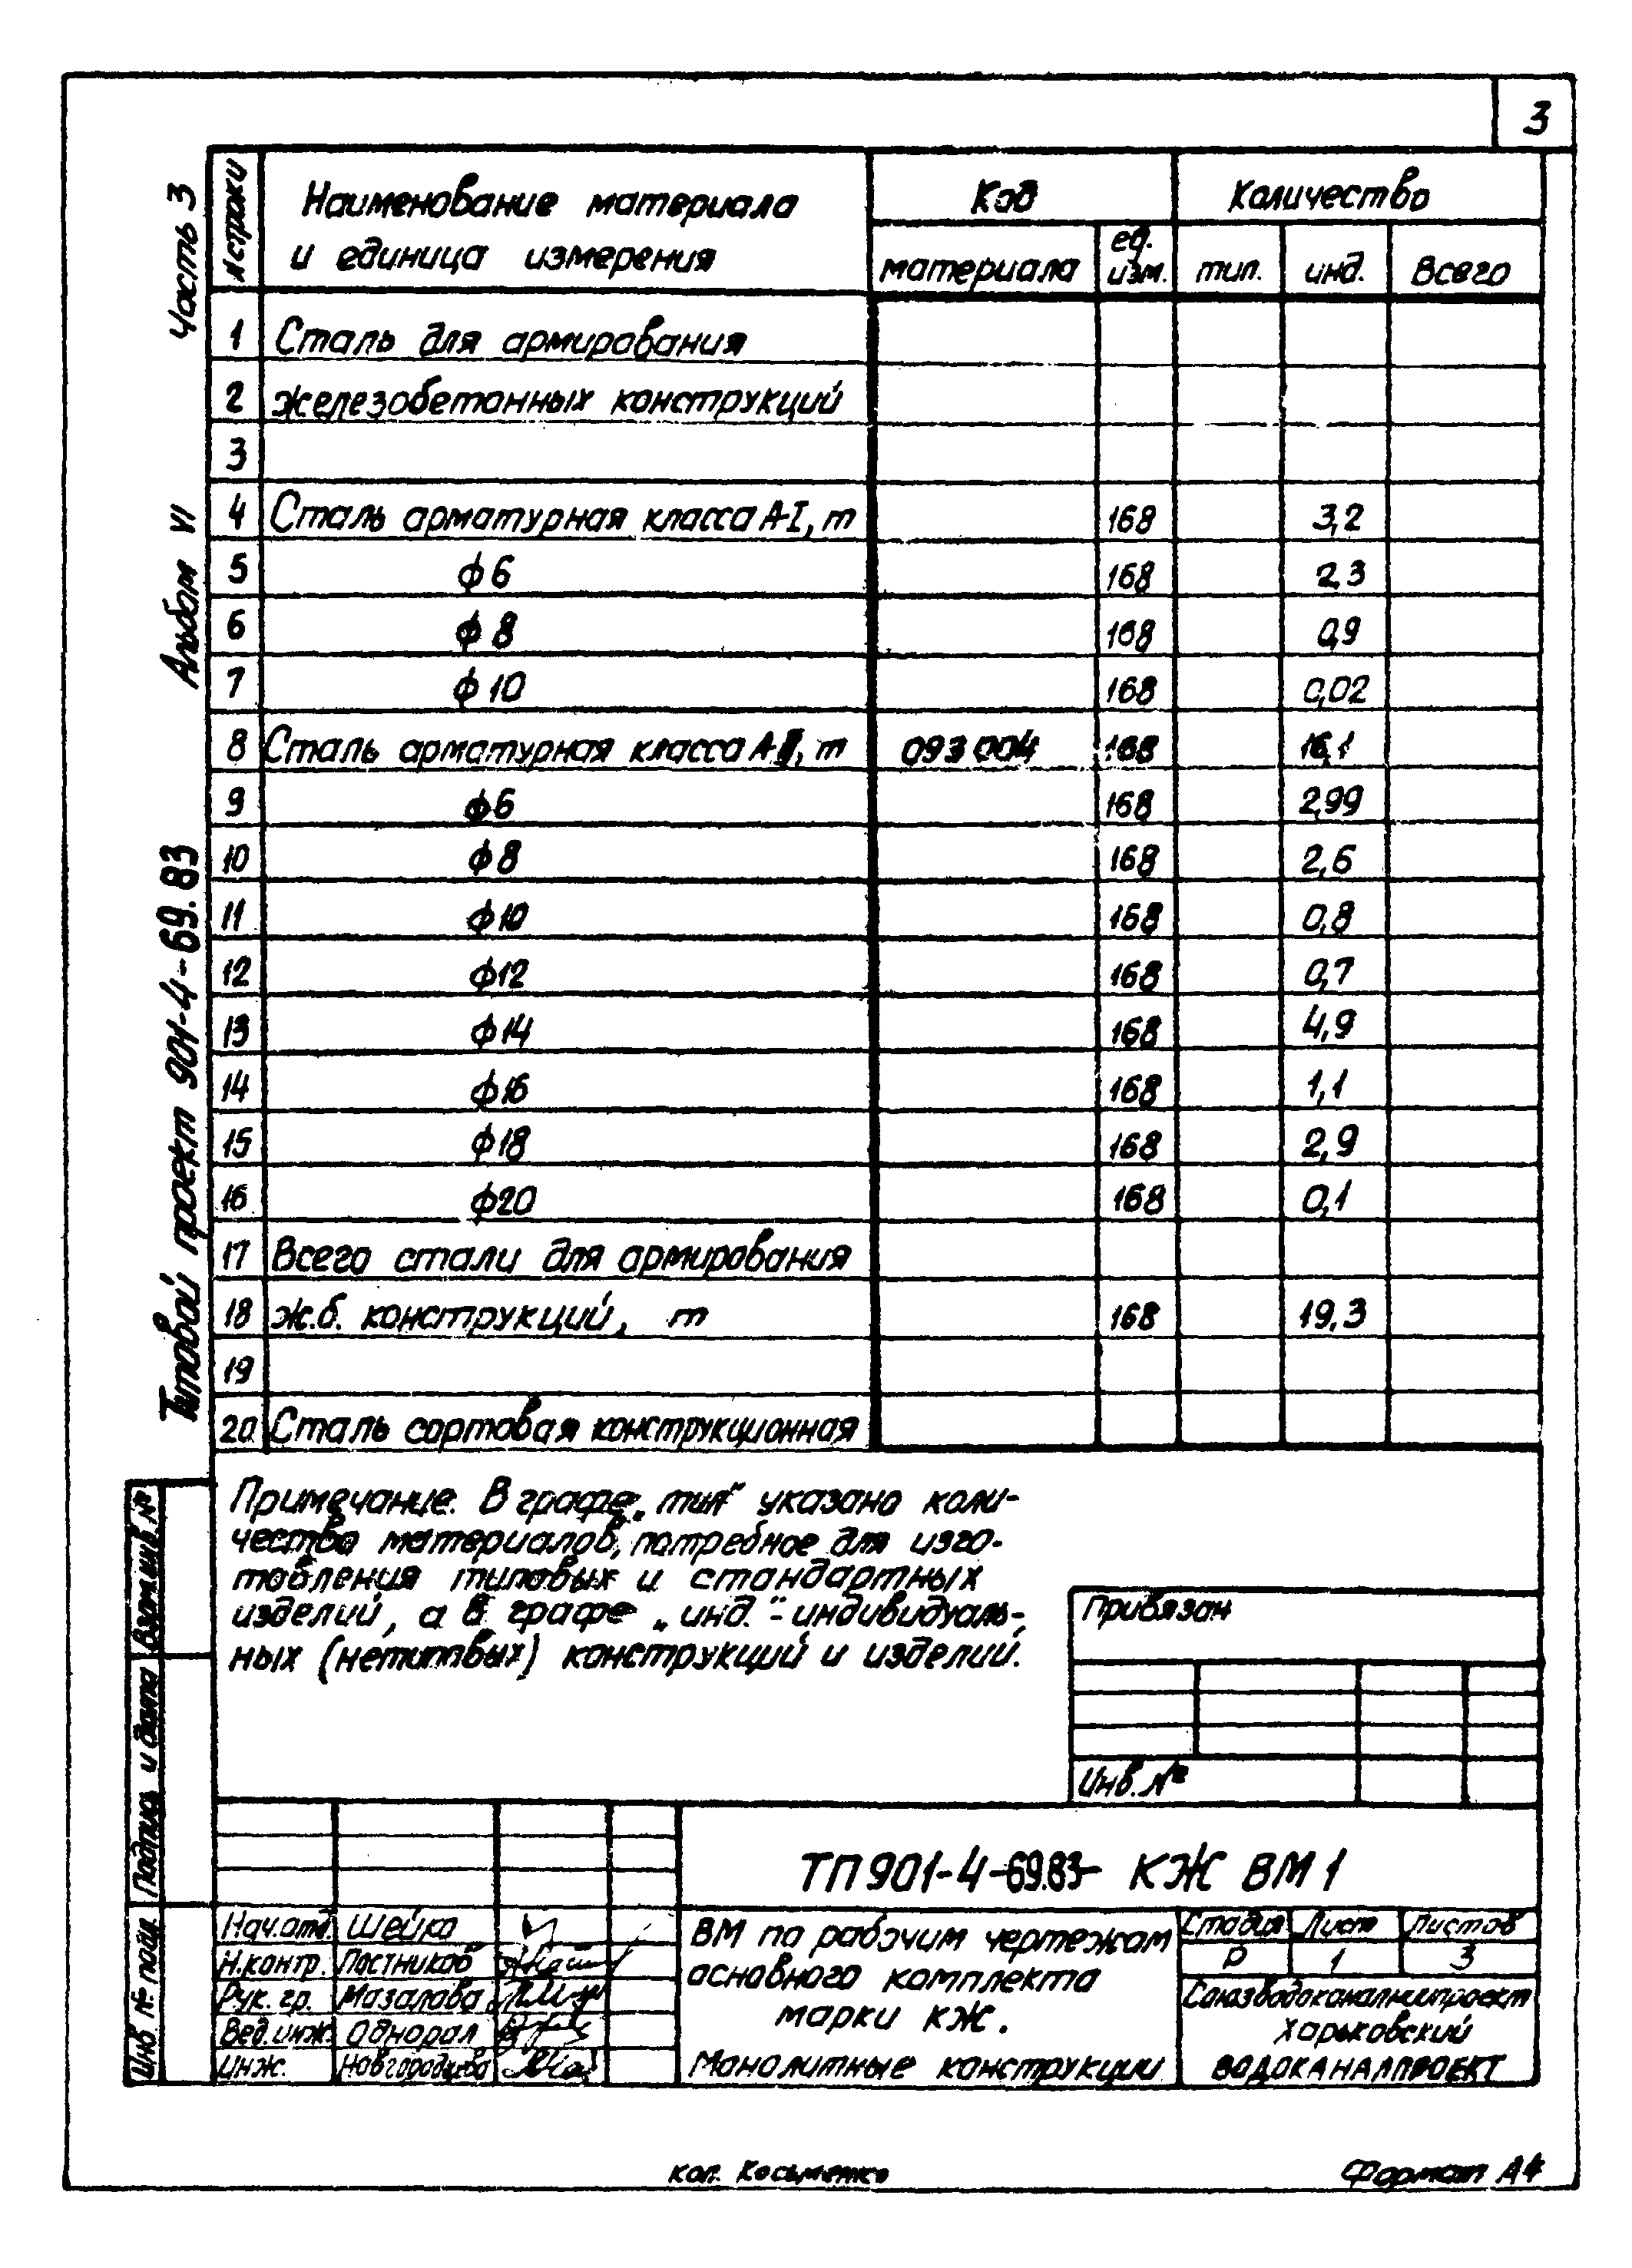 3
Типовой проект 901-4-69.83 Альбом VI Часть 3
N строки | Наименование материала и единица измерения | Код | Количество
материала | ед. изм. | тип. | инд. | Всего
1 Сталь для армирования
2 железобетонных конструкций
3
4 Сталь арматурная класса А-I, т 168 3,2
5 ф6 168 2,3
6 ф8 168 0,9
7 ф10 168 0,02
8 Сталь арматурная класса А-, т 093004 168 16,1
9 ф6 168 2,99
10 ф8 168 2,6
11 ф10 168 0,8
12 ф12 168 0,7
13 ф14 168 4,9
14 ф16 168 1,1
15 ф18 168 2,9
16 ф20 168 0,1
17 Всего стали для армирования
18 ж.б. конструкций, т 168 19,3
19
20 Сталь сортовая конструкционная
Примечание. В графе „тип" указано коли-
чество материалов, потребное для изго-
товления типовых и стандартных
изделий, а в графе „инд."- индивидуаль-
ных (нетиповых) конструкций и изделий.
Привязан
Инв. №
Взам.инв.№
Подпись и дата
Инв № подл
ТП 901-4-69.83- КЖ ВМ 1
Нач.отд. Шейко
Н.контр. Постников
Рук. гр. Мазалова
Вед.инж. Однорал
Инж. Новгородцева
ВМ по рабочим чертежам
основного комплекта
марки КЖ.
Монолитные конструкции
Стадия Лист Листов
Р 1 3
Союзводоканалниипроект
Харьковский
ВОДОКАНАЛПРОЕКТ
кол. Косьменко
Формат А4